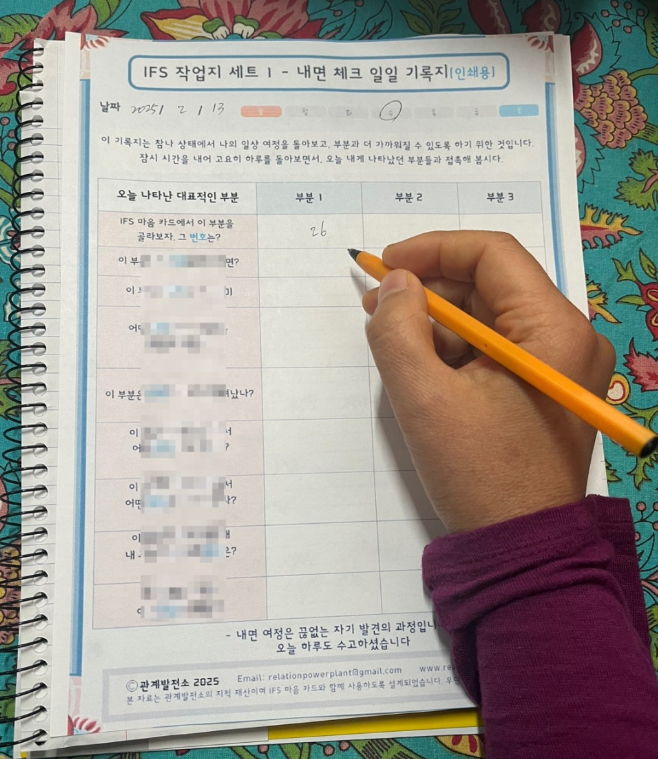 IFS 작업지 세트 1 - 내면 체크 일일 기록지(인쇄용)
날짜 2025 / 2 / 13 일 월 화 수 목 금 토
이 기록지는 참나 상태에서 나의 일상 여정을 돌아보고, 부분과 더 가까워질 수 있도록 하기 위한 것입니다.
잠시 시간을 내어 고요히 하루를 돌아보면서, 오늘 내게 나타났던 부분들과 접촉해 봅시다.
오늘 나타난 대표적인 부분 부분 1 부분 2 부분 3
IFS 마음 카드에서 이 부분을
골라보자. 그 번호는?
26
이 부 면?
이
어
이 부분은 났나?
이 서
어 ?
이 서
어떤 ?
이
내 ?
- 내면 여정은 끊없는 자기 발견의 과정입니
오늘 하루도 수고하셨습니다
©관계발전소 2025 Email: relationpowerplant@gmail.com www.re
본 자료는 관계발전소의 지적 재산이며 IFS 마음 카드와 함께 사용하도록 설계되었습니다.